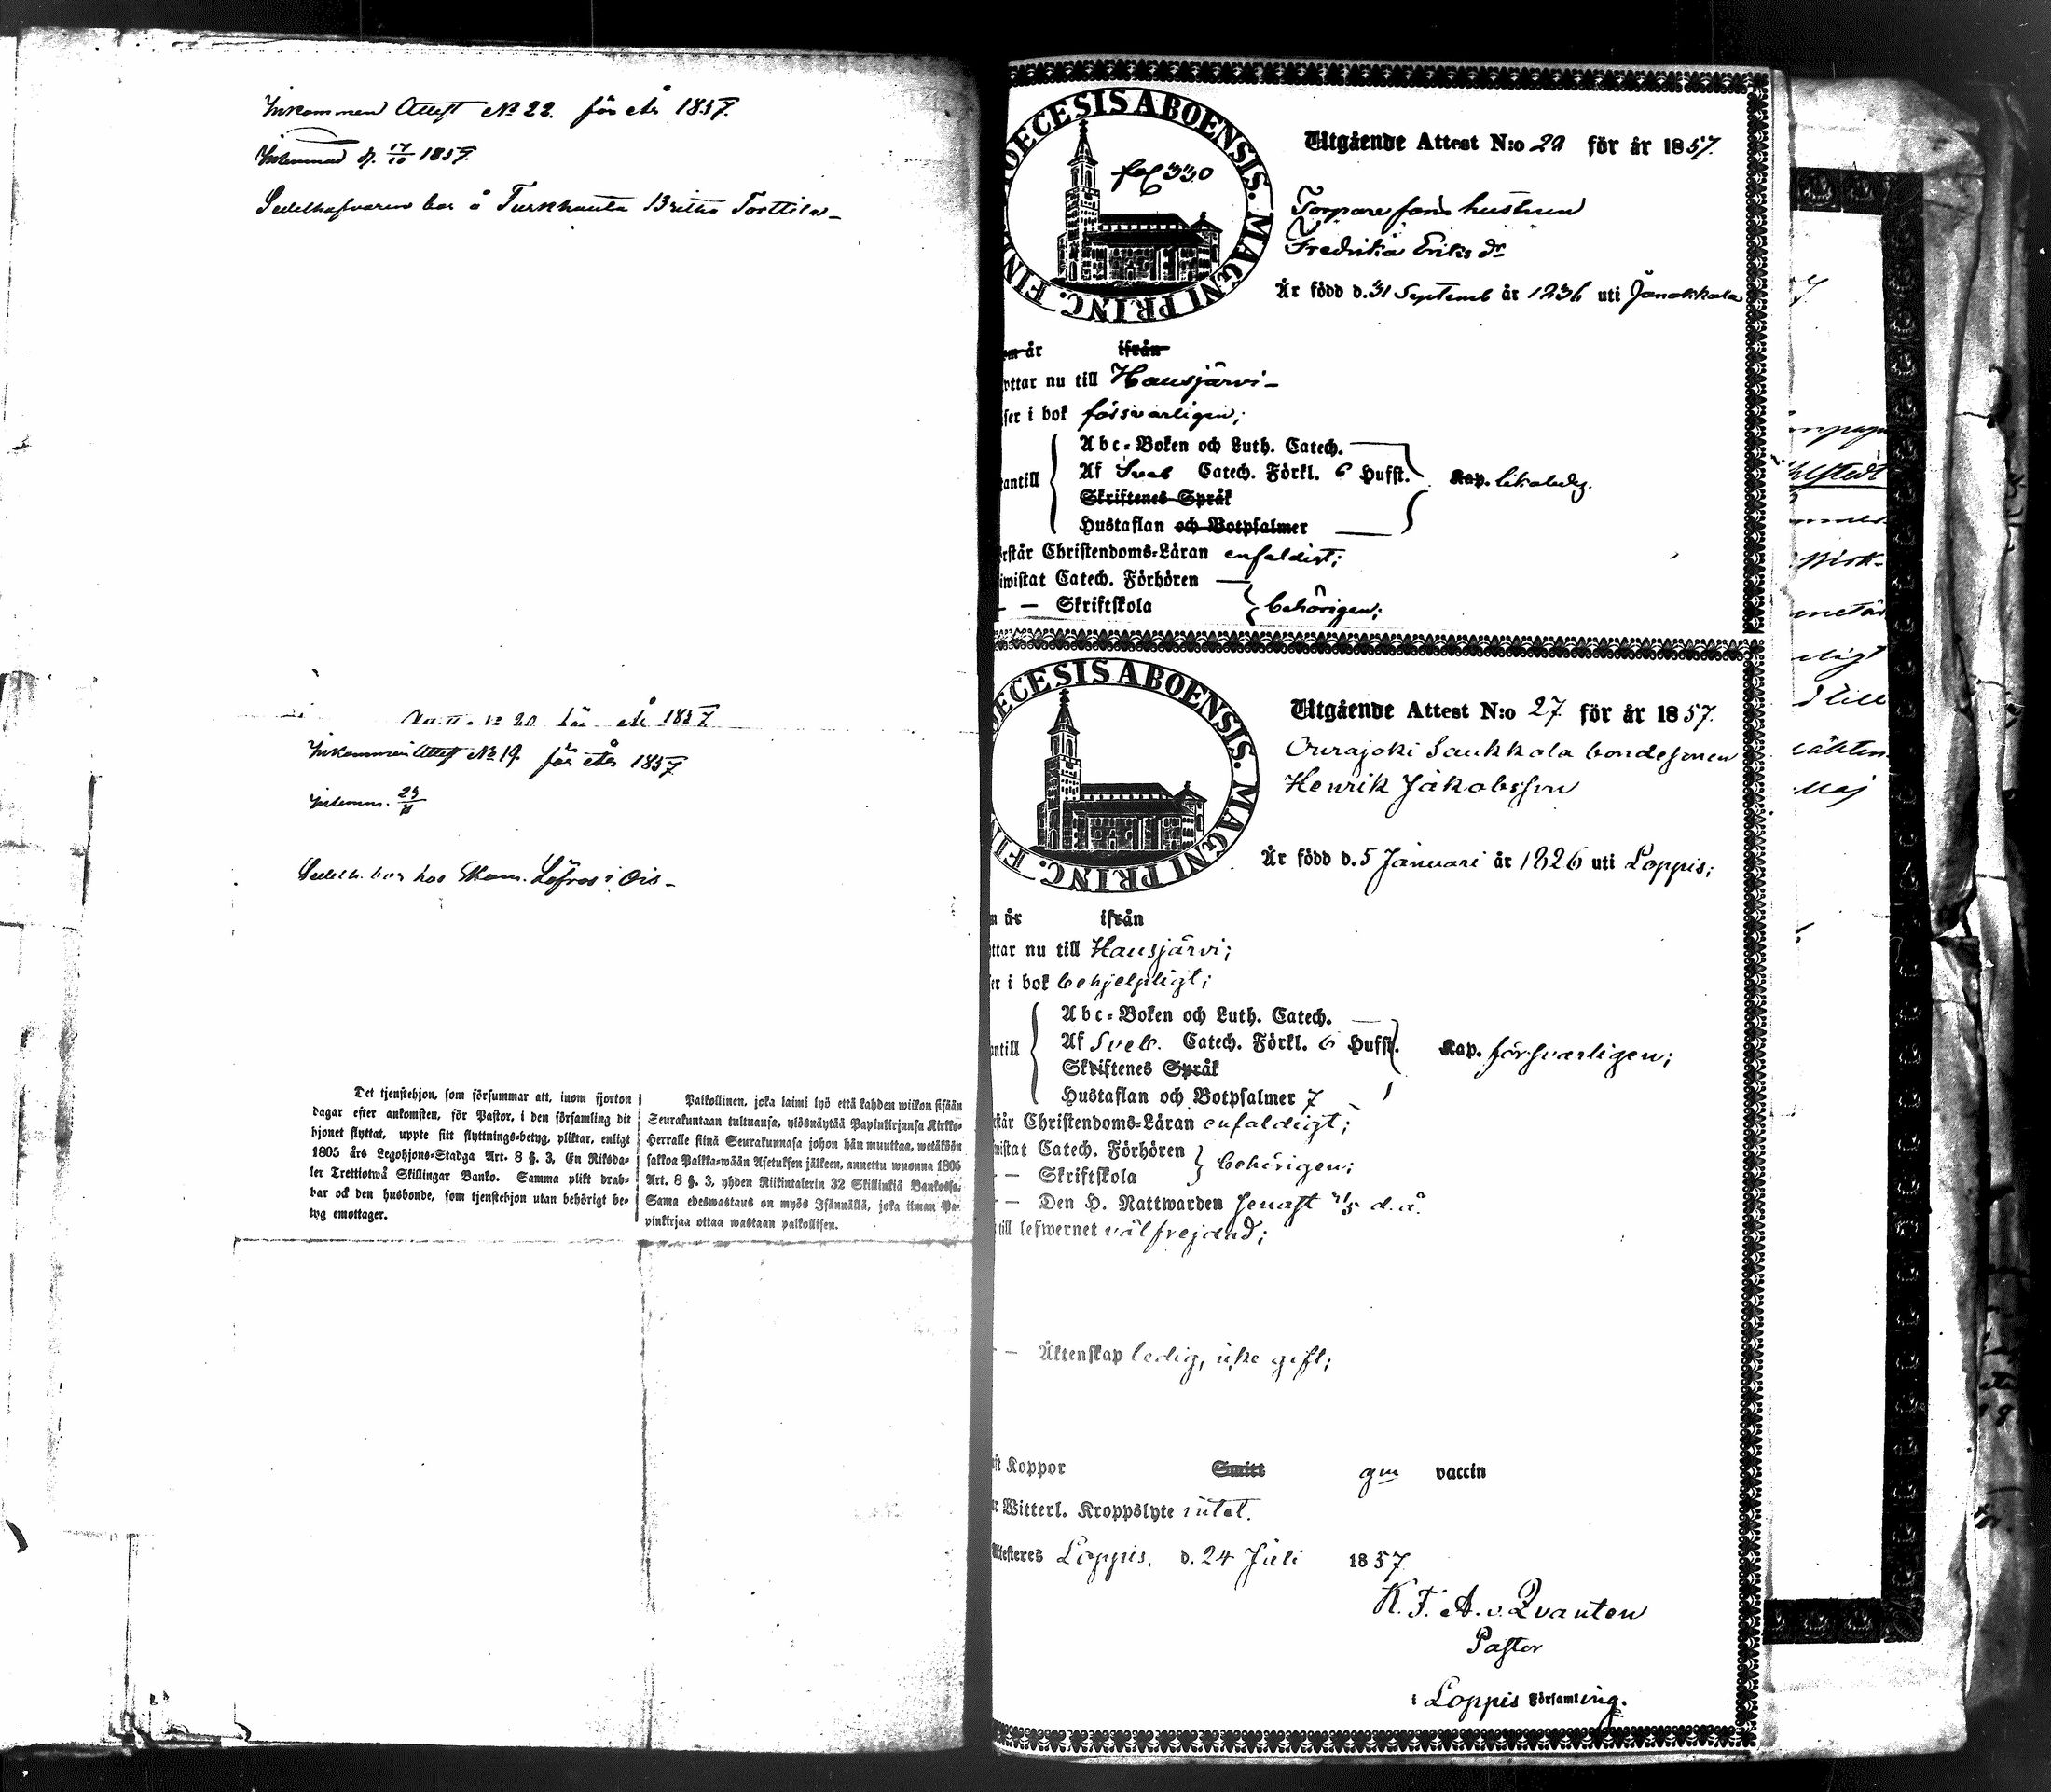 Inkommen Attest No 22. för år 1857.
Inlemnad d. 17/10 1857.
Sedelhafvaren bor å Turkhauta Britha Torttila
för år 1857.
Inkommen Attest No 19. för år 1857
Inlemn.
Sedelh. bor hos i Ois
Det tjenstehjon, som försummar att, inom fjorton
dagar efter ankomsten, för Pastor, i den församling dit
hjonet flyttat, uppte sitt flyttnings-betyg, pliktar, enligt
1805 års Legohjons-Stadga Art. 8 §. 3, En Riksda-
ler Trettiotwå Skillingar Banko. Samma plikt drab-
bar ock den husbonde, som tjenstehjon utan behörigt be-
tyg emottager.
Palkollinen, joka laimi lyö että kahden wiikon sisään
Seurakuntaan tultuansa, ylösnäytää Papinkirjansa Kirkko-
Herralle siinä Seurakunnasa johon hän muuttaa, wetäköön
sakkoa Palkka-wään Asetuksen jälkeen, annettu wuonna 1805
Art. 8 §. 3, yhden Riikintalerin 32 Skillinkiä Bankossa.
Sama edeswastaus on myös Isännällä, joka ilman Pa-
pinkirjaa ottaa wastaan palkollisen.
DECESIS ABOENSIS. MAGNI PRINC. FIN
fol 330
Utgående Attest N:o 22 för år 1857.
Torpare sons hustrun
Fredrika Eriks dr
Är född d. 31 Septemb år 1836 uti Janakkala
år ifrån
ttar nu till Hausjärvi
ser i bok försvarligen;
Abc-Boken och Luth. Catech.
antill Af Sveb Catech. Förkl. 6 Hufst. Kap. likaledes.
Skriftenes Språk
Hustaflan och Botpsalmer
rstår Christendoms-Läran enfaldigt;
iwistat Catech. Förhören
— Skriftskola behörigen;
ECESIS ABOENSIS. MAGNI PRINC. FI
Utgående Attest N:o 27 för år 1857.
Ourajoki Saukkola bondesonen
Henrik Jakobsson
Är född d. 5 Januari år 1826 uti Loppis;
år ifrån
ttar nu till Hausjärvi;
er i bok behjelpligt;
Abc-Boken och Luth. Catech.
antill Af Sveb. Catech. Förkl. 6 Hufst. Kap. försvarligen;
Skriftenes Språk
Hustaflan och Botpsalmer 7
står Christendoms-Läran enfaldigt;
wistat Catech. Förhören
— Skriftskola behörigen;
— Den H. Nattwarden senast d. å.
till lefwernet välfrejdad;
— Äktenskap ledig, icke gift;
ft Koppor Smitt gm vaccin
Witterl. Kroppslyte intet.
Attesteres Loppis, d. 24 Juli 1857
K. F. A. v. Qvanten
Pastor
i Loppis Församling.